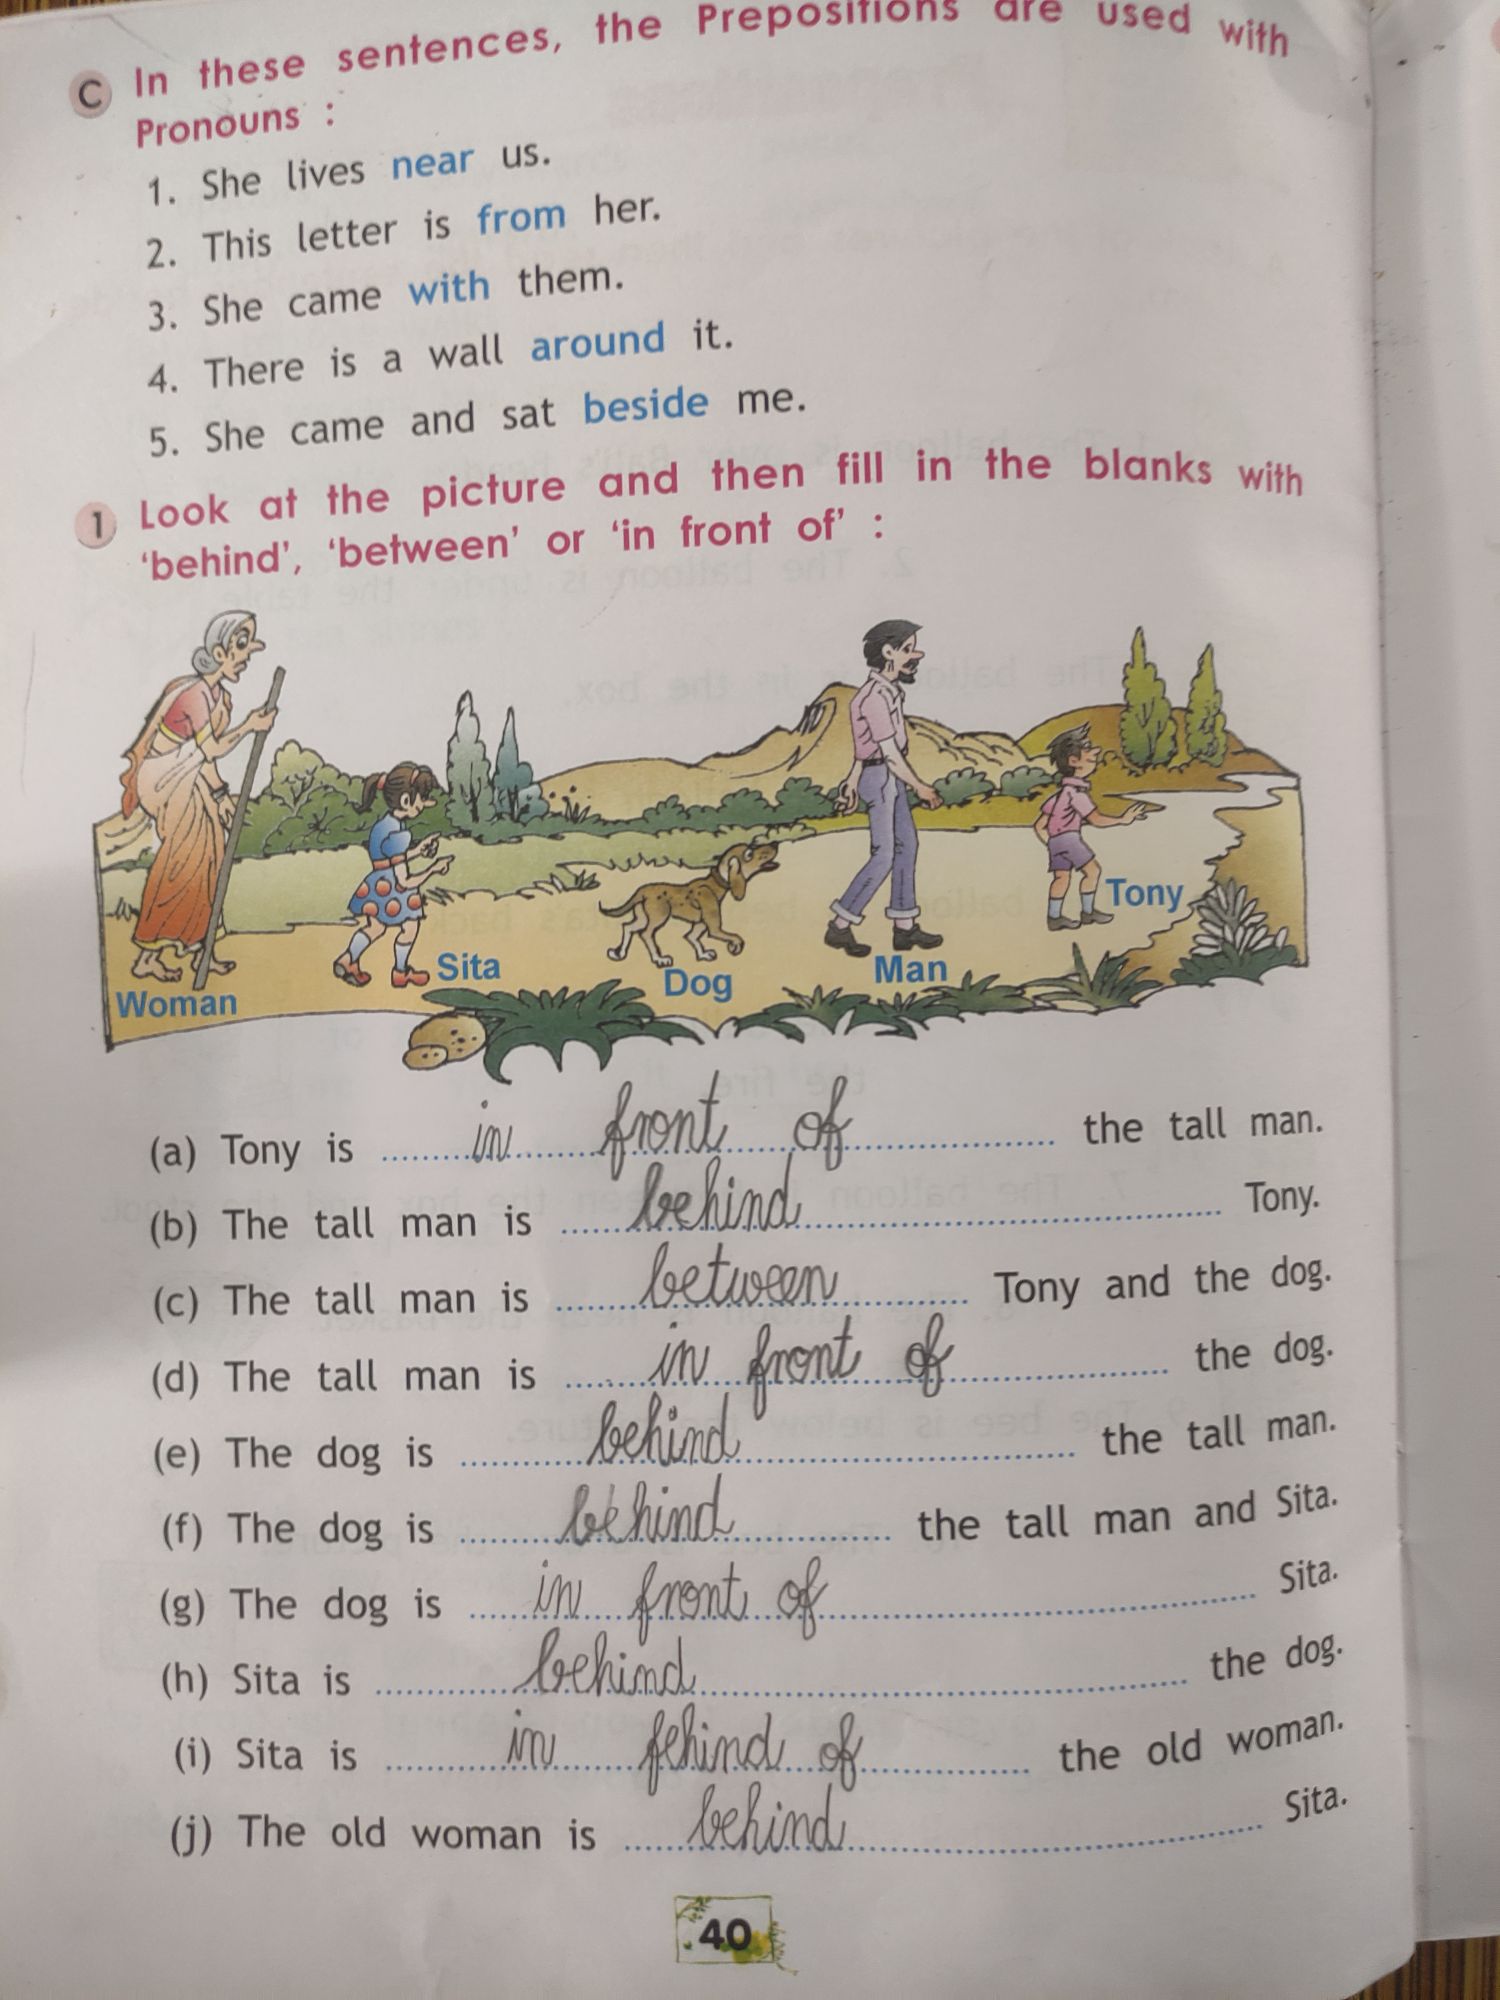 C In these sentences, the Prepositions are used with
Pronouns :
1. She lives near us.
2. This letter is from her.
3. She came with them.
4. There is a wall around it.
5. She came and sat beside me.
1 Look at the picture and then fill in the blanks with
‘behind’, ‘between’ or ‘in front of’ :
Woman
Sita
Dog
Man
Tony
(a) Tony is in front of the tall man.
(b) The tall man is behind Tony.
(c) The tall man is between Tony and the dog.
(d) The tall man is in front of the dog.
(e) The dog is behind the tall man.
(f) The dog is behind the tall man and Sita.
(g) The dog is in front of Sita.
(h) Sita is behind the dog.
(i) Sita is in fehind of the old woman.
(j) The old woman is behind Sita.
40